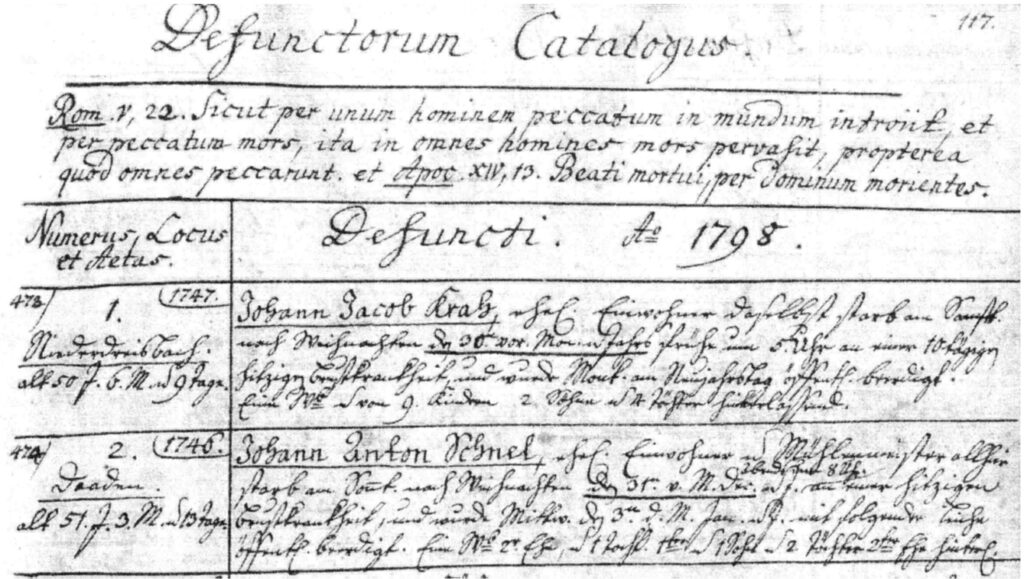 117.
Defunctorum Catalogus.
Rom. V, 22. Sicut per unum hominem peccatum in mundum introiit, et
per peccatum mors, ita in omnes homines mors pervasit, propterea
quod omnes peccarunt. et Apoc. XIV, 13. Beati mortui, per Dominum morientes.
Numerus, Locus
et Aetas.
Defuncti. Ao 1798.
473/ 1. 1747.
Niederdreisbach.
alt 50 J. 6. M. u 9 Tage.
Johann Jacob Krah, ehel. Einwohner daselbst starb am Samst.
nach Weihnachten den 30t vor. Mon. u Jahrs frühe um 5 Uhr an einer 10tägigen
hitzigen Brustkrankheit, und wurde Mont. am Neujahrstag öffentl. beerdigt.
Eine von 9. Kinder 2. Söhne u 4 Töchter hinterlassend.
474/ 2. 1746.
Daaden
alt 51. J. 3. M. u 13 Tage.
Johann Anton Schnel, ehel. Einwohner u Mühlenmeister allhier
Abends um 8 Uhr
starb am Sonnt. nach Weihnachten den 31n v. M. Dec. an einer hitzigen
Brustkrankheit, und wurde Mittw. d 3n d. M. Jan. mit folgender Leiche
öffentl. beerdigt. Eine 2r Ehe, 1 Tocht. 1ter u 1 Sohn u 2 Töchter 2ter Ehe hinterl.